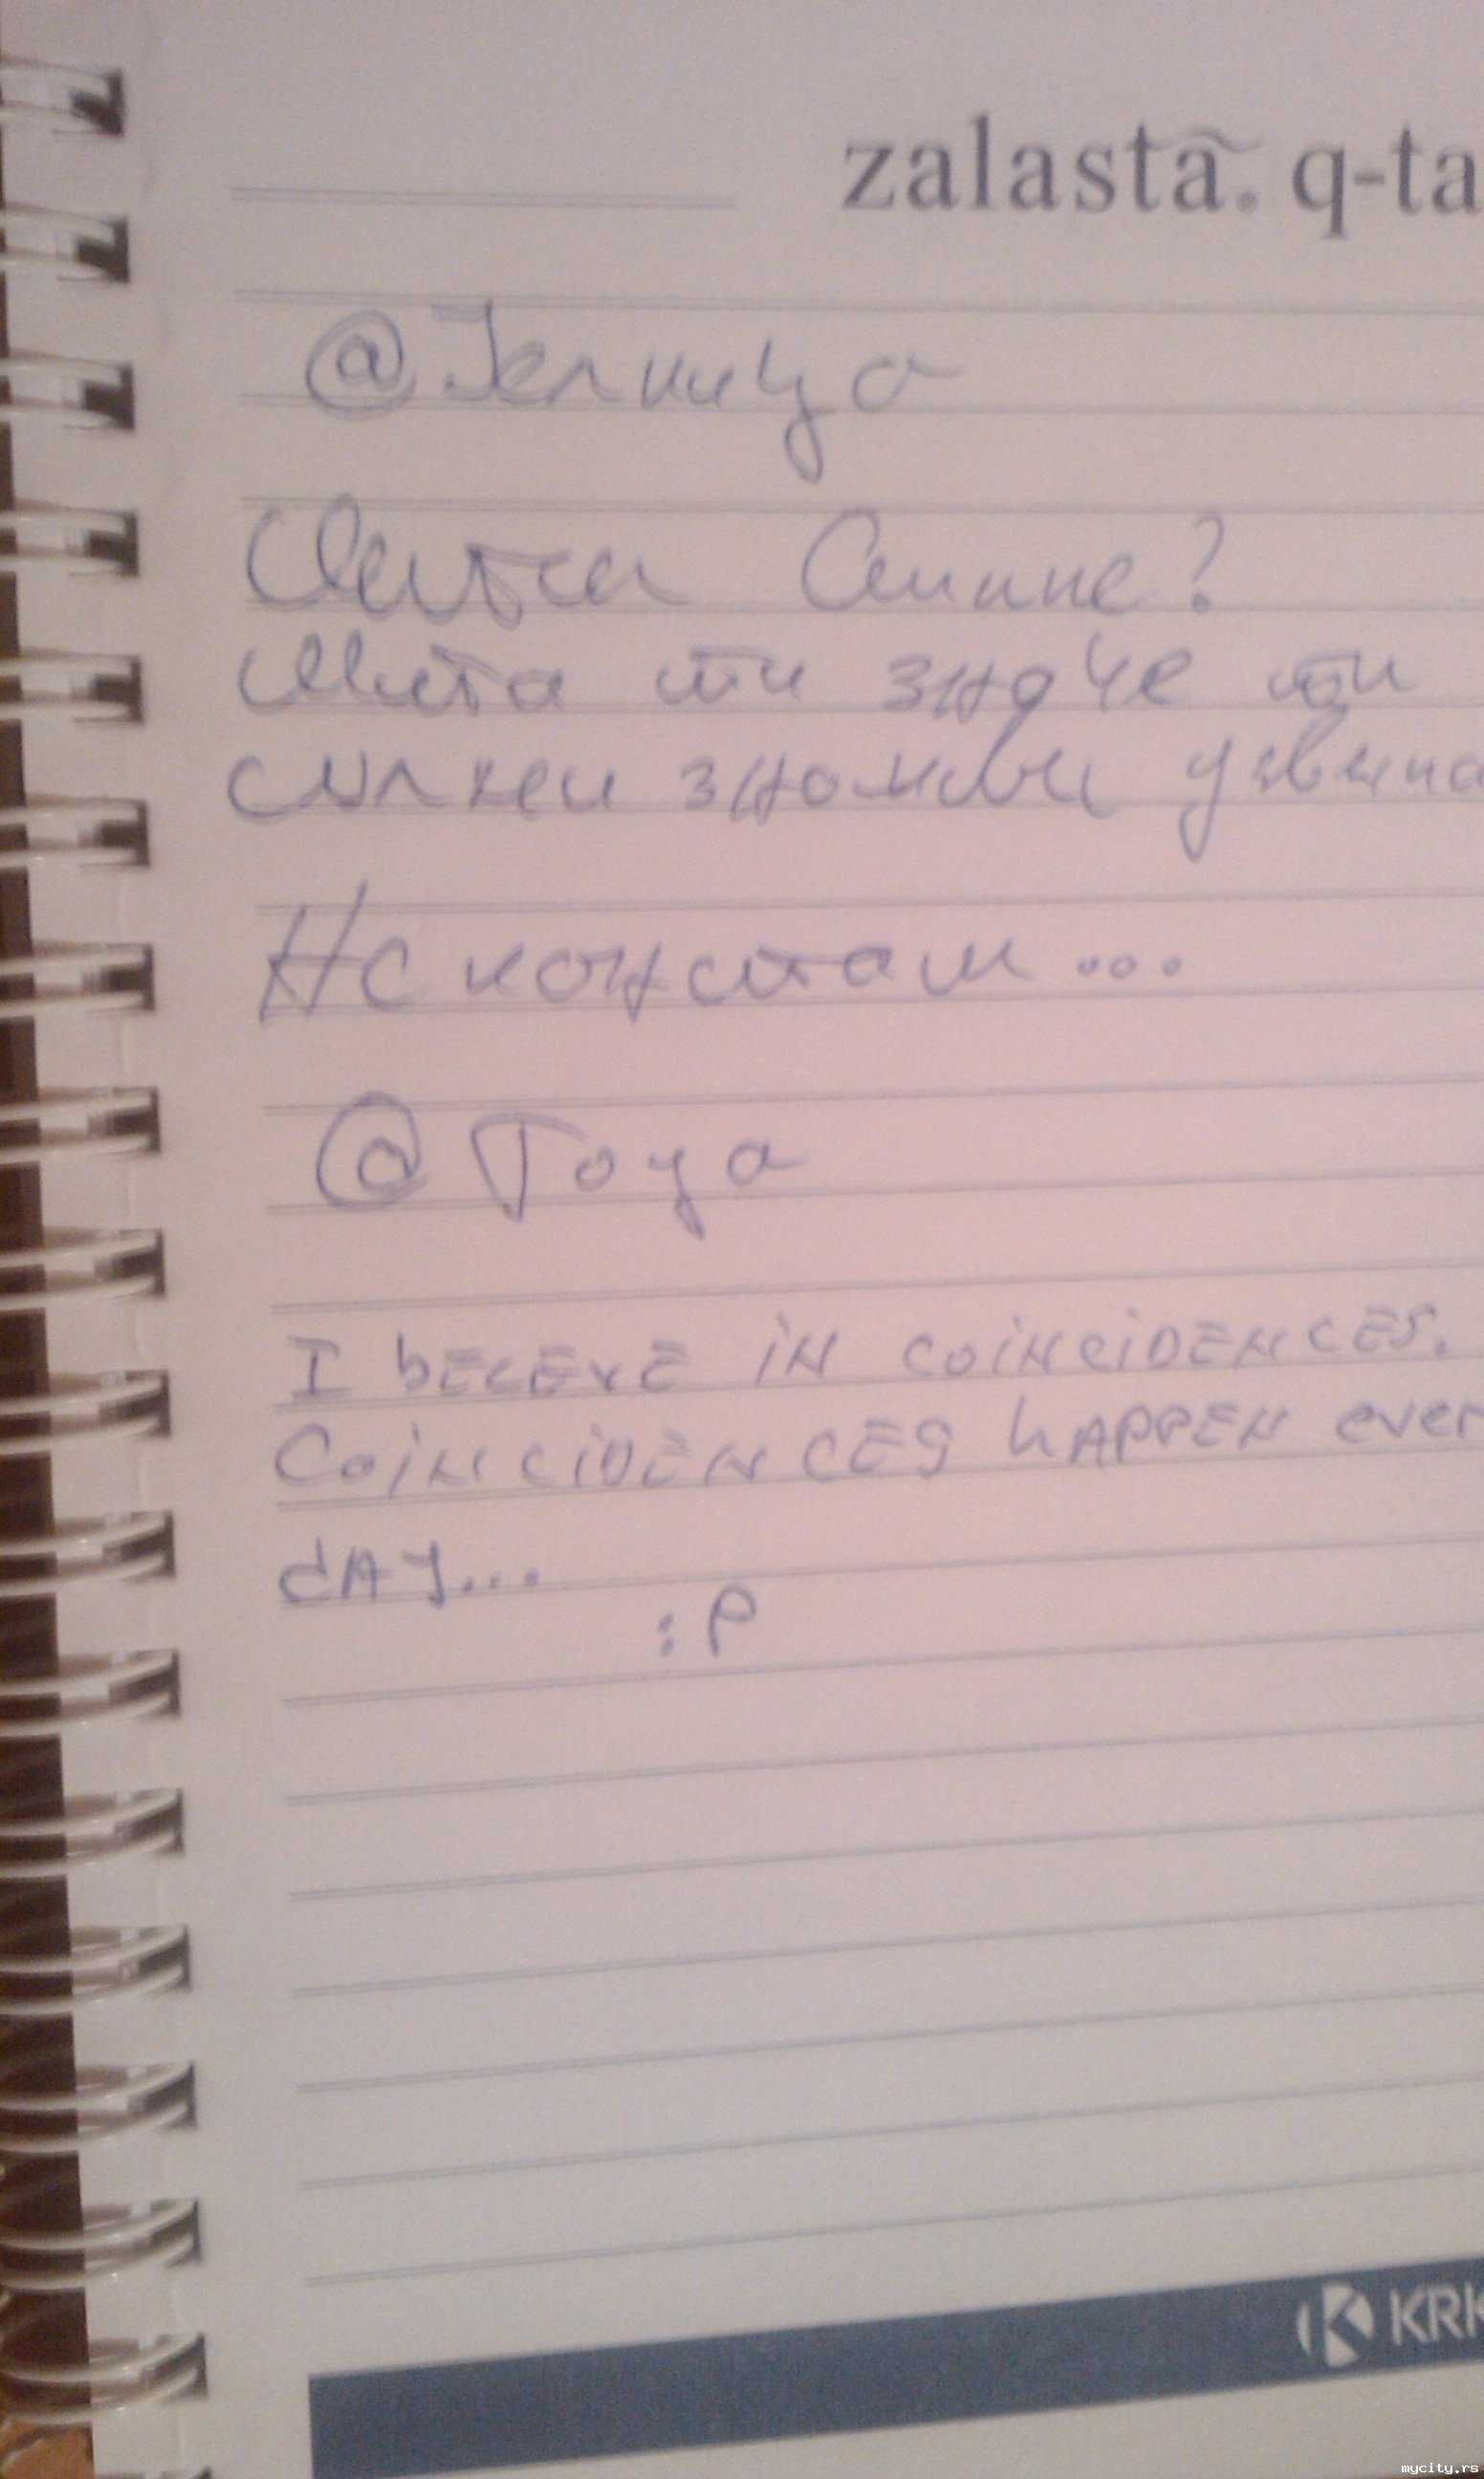 zalasta. q-ta
@Јелница
Шта ти значе ти
силни знакови узвика
Не контам...
@Гоуа
I BELEVE IN COINCIDENCES.
COINCIDENCES HAPPEN ever
DAY...
:P
KRK
mycity.rs